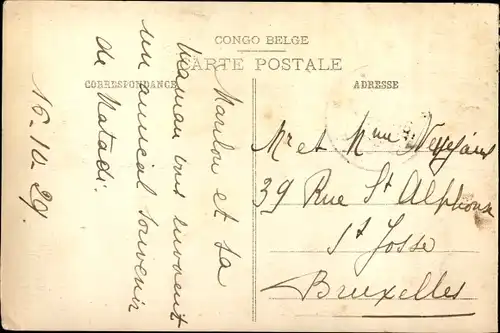 CONGO BELGE
CARTE POSTALE
CORRESPONDANCE
ADRESSE
Loulou et sa
maman vous envoient
un amical souvenir
de Matadi.
16-10-29.
Mr et Mme
39 Rue St Alphonse
St Josse
Bruxelles